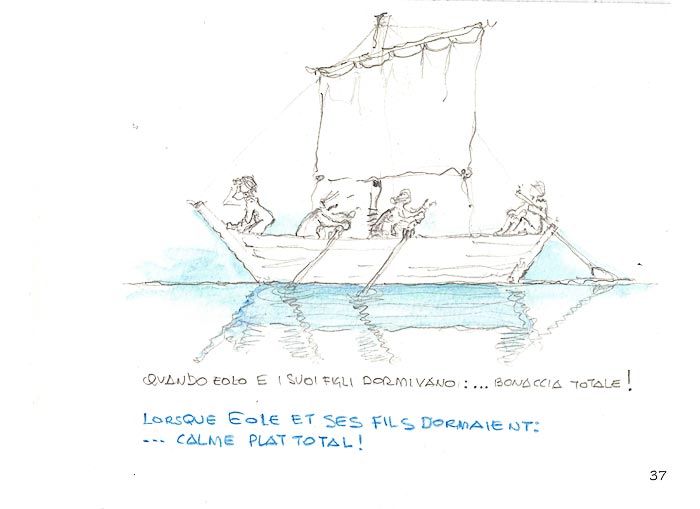 QUANDO EOLO E I SUOI FIGLI DORMIVANO :... BONACCIA TOTALE!
LORSQUE EOLE ET SES FILS DORMAIENT:
... CALME PLAT TOTAL!
37